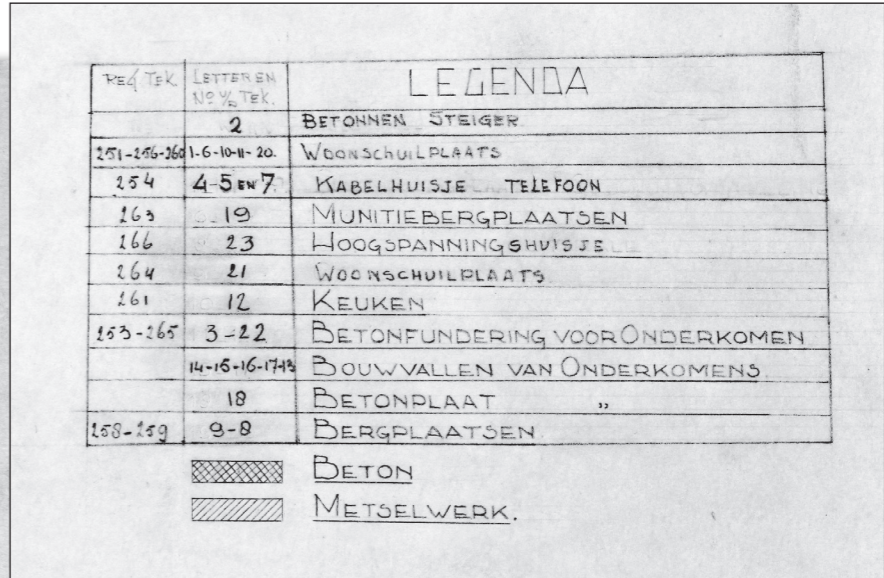 REG TEK. LETTER EN No v/d TEK. LEGENDA
2 BETONNEN STEIGER
251-256-260 1-6-10-11-20. WOONSCHUILPLAATS
254 4-5 EN 7 KABELHUISJE TELEFOON
263 19 MUNITIEBERGPLAATSEN
266 23 HOOGSPANNINGSHUISJE
264 21 WOONSCHUILPLAATS
261 12 KEUKEN
253-265 3-22 BETONFUNDERING VOOR ONDERKOMEN
14-15-16-17-13 BOUWVALLEN VAN ONDERKOMENS
18 BETONPLAAT ,,
258-259 9-8 BERGPLAATSEN
BETON
METSELWERK.